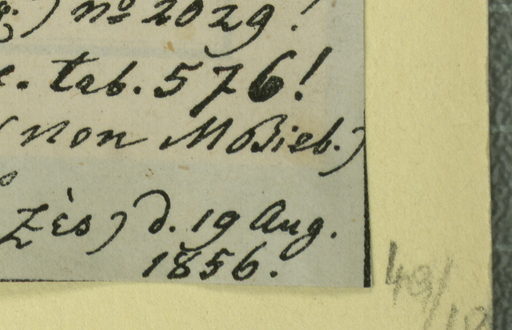 ) nº 2029!
. tab. 576!
(non MBieb.)
Zès) d. 19 Aug.
1856.
49/